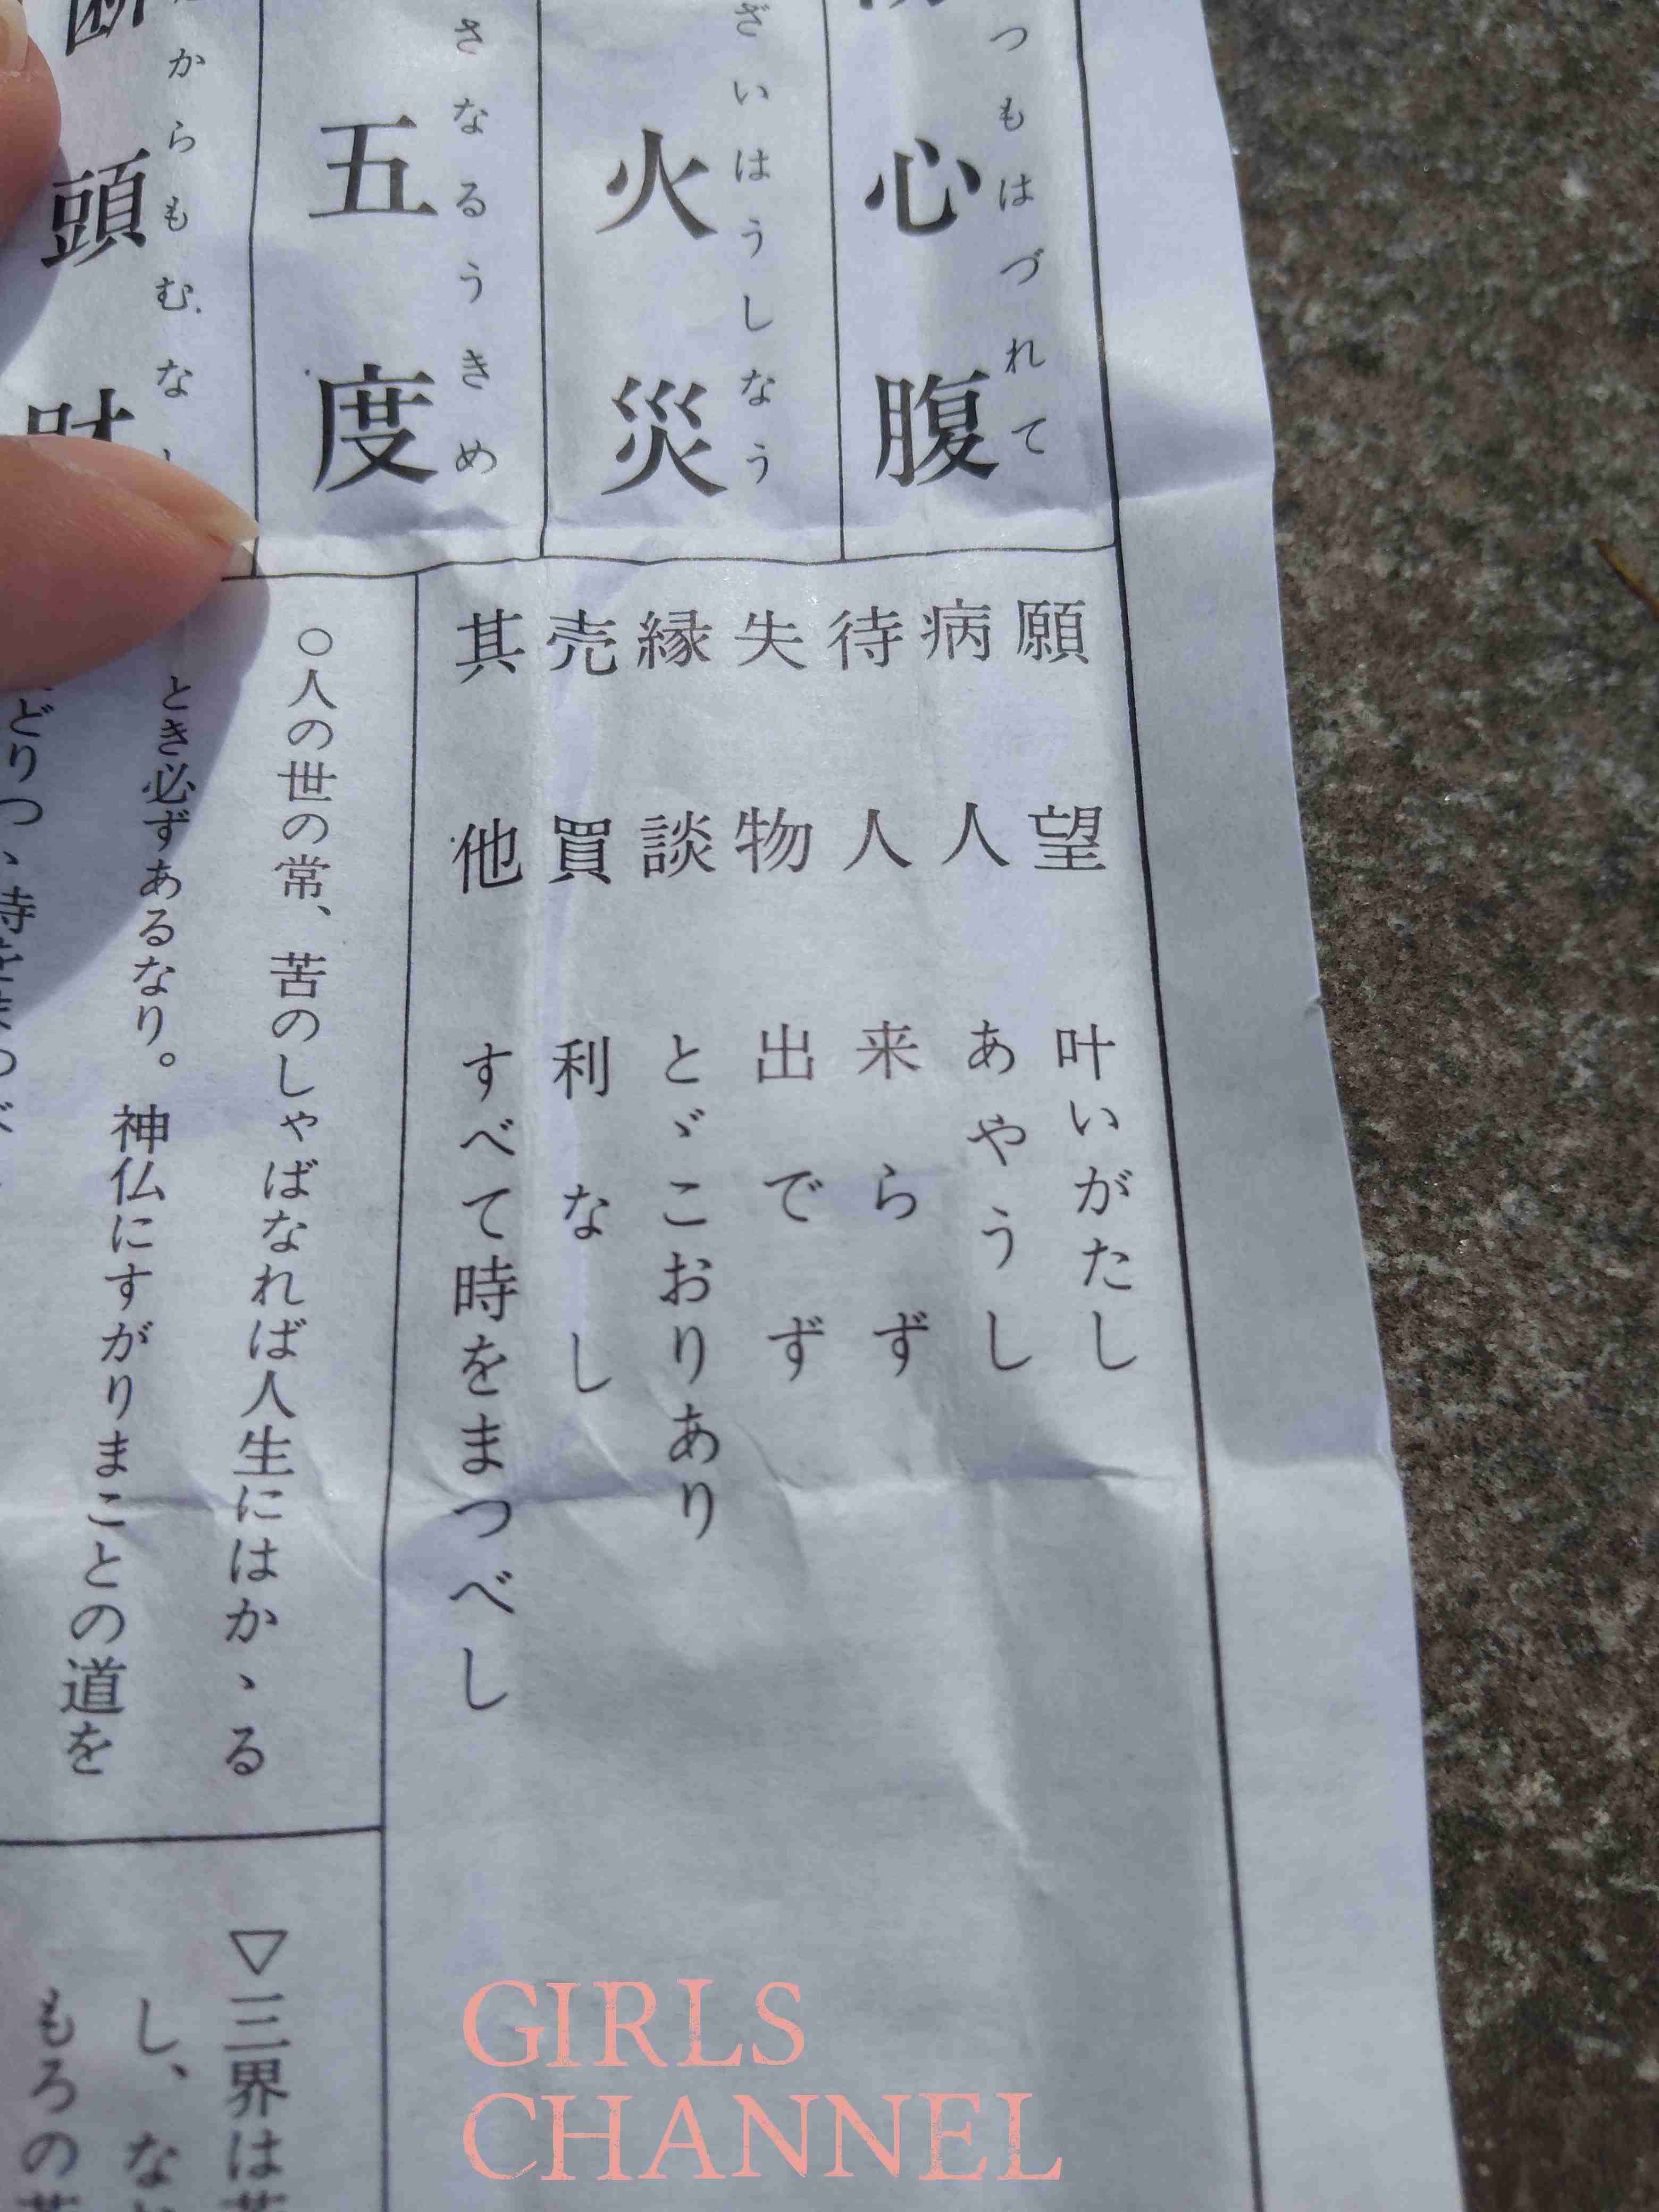 つもはづれて
心腹
ざいはうしなう
火災
さなるうきめ
五度
からもむな
頭
願望 叶いがたし
病人 あやうし
待人 来らず
失物 出でず
縁談 とゞこおりあり
売買 利なし
其他 すべて時をまつべし
○人の世の常、苦のしゃばなれば人生にはかゝる
とき必ずあるなり。神仏にすがりまことの道を
▽三界は
し、な
もろの
GIRLS
CHANNEL